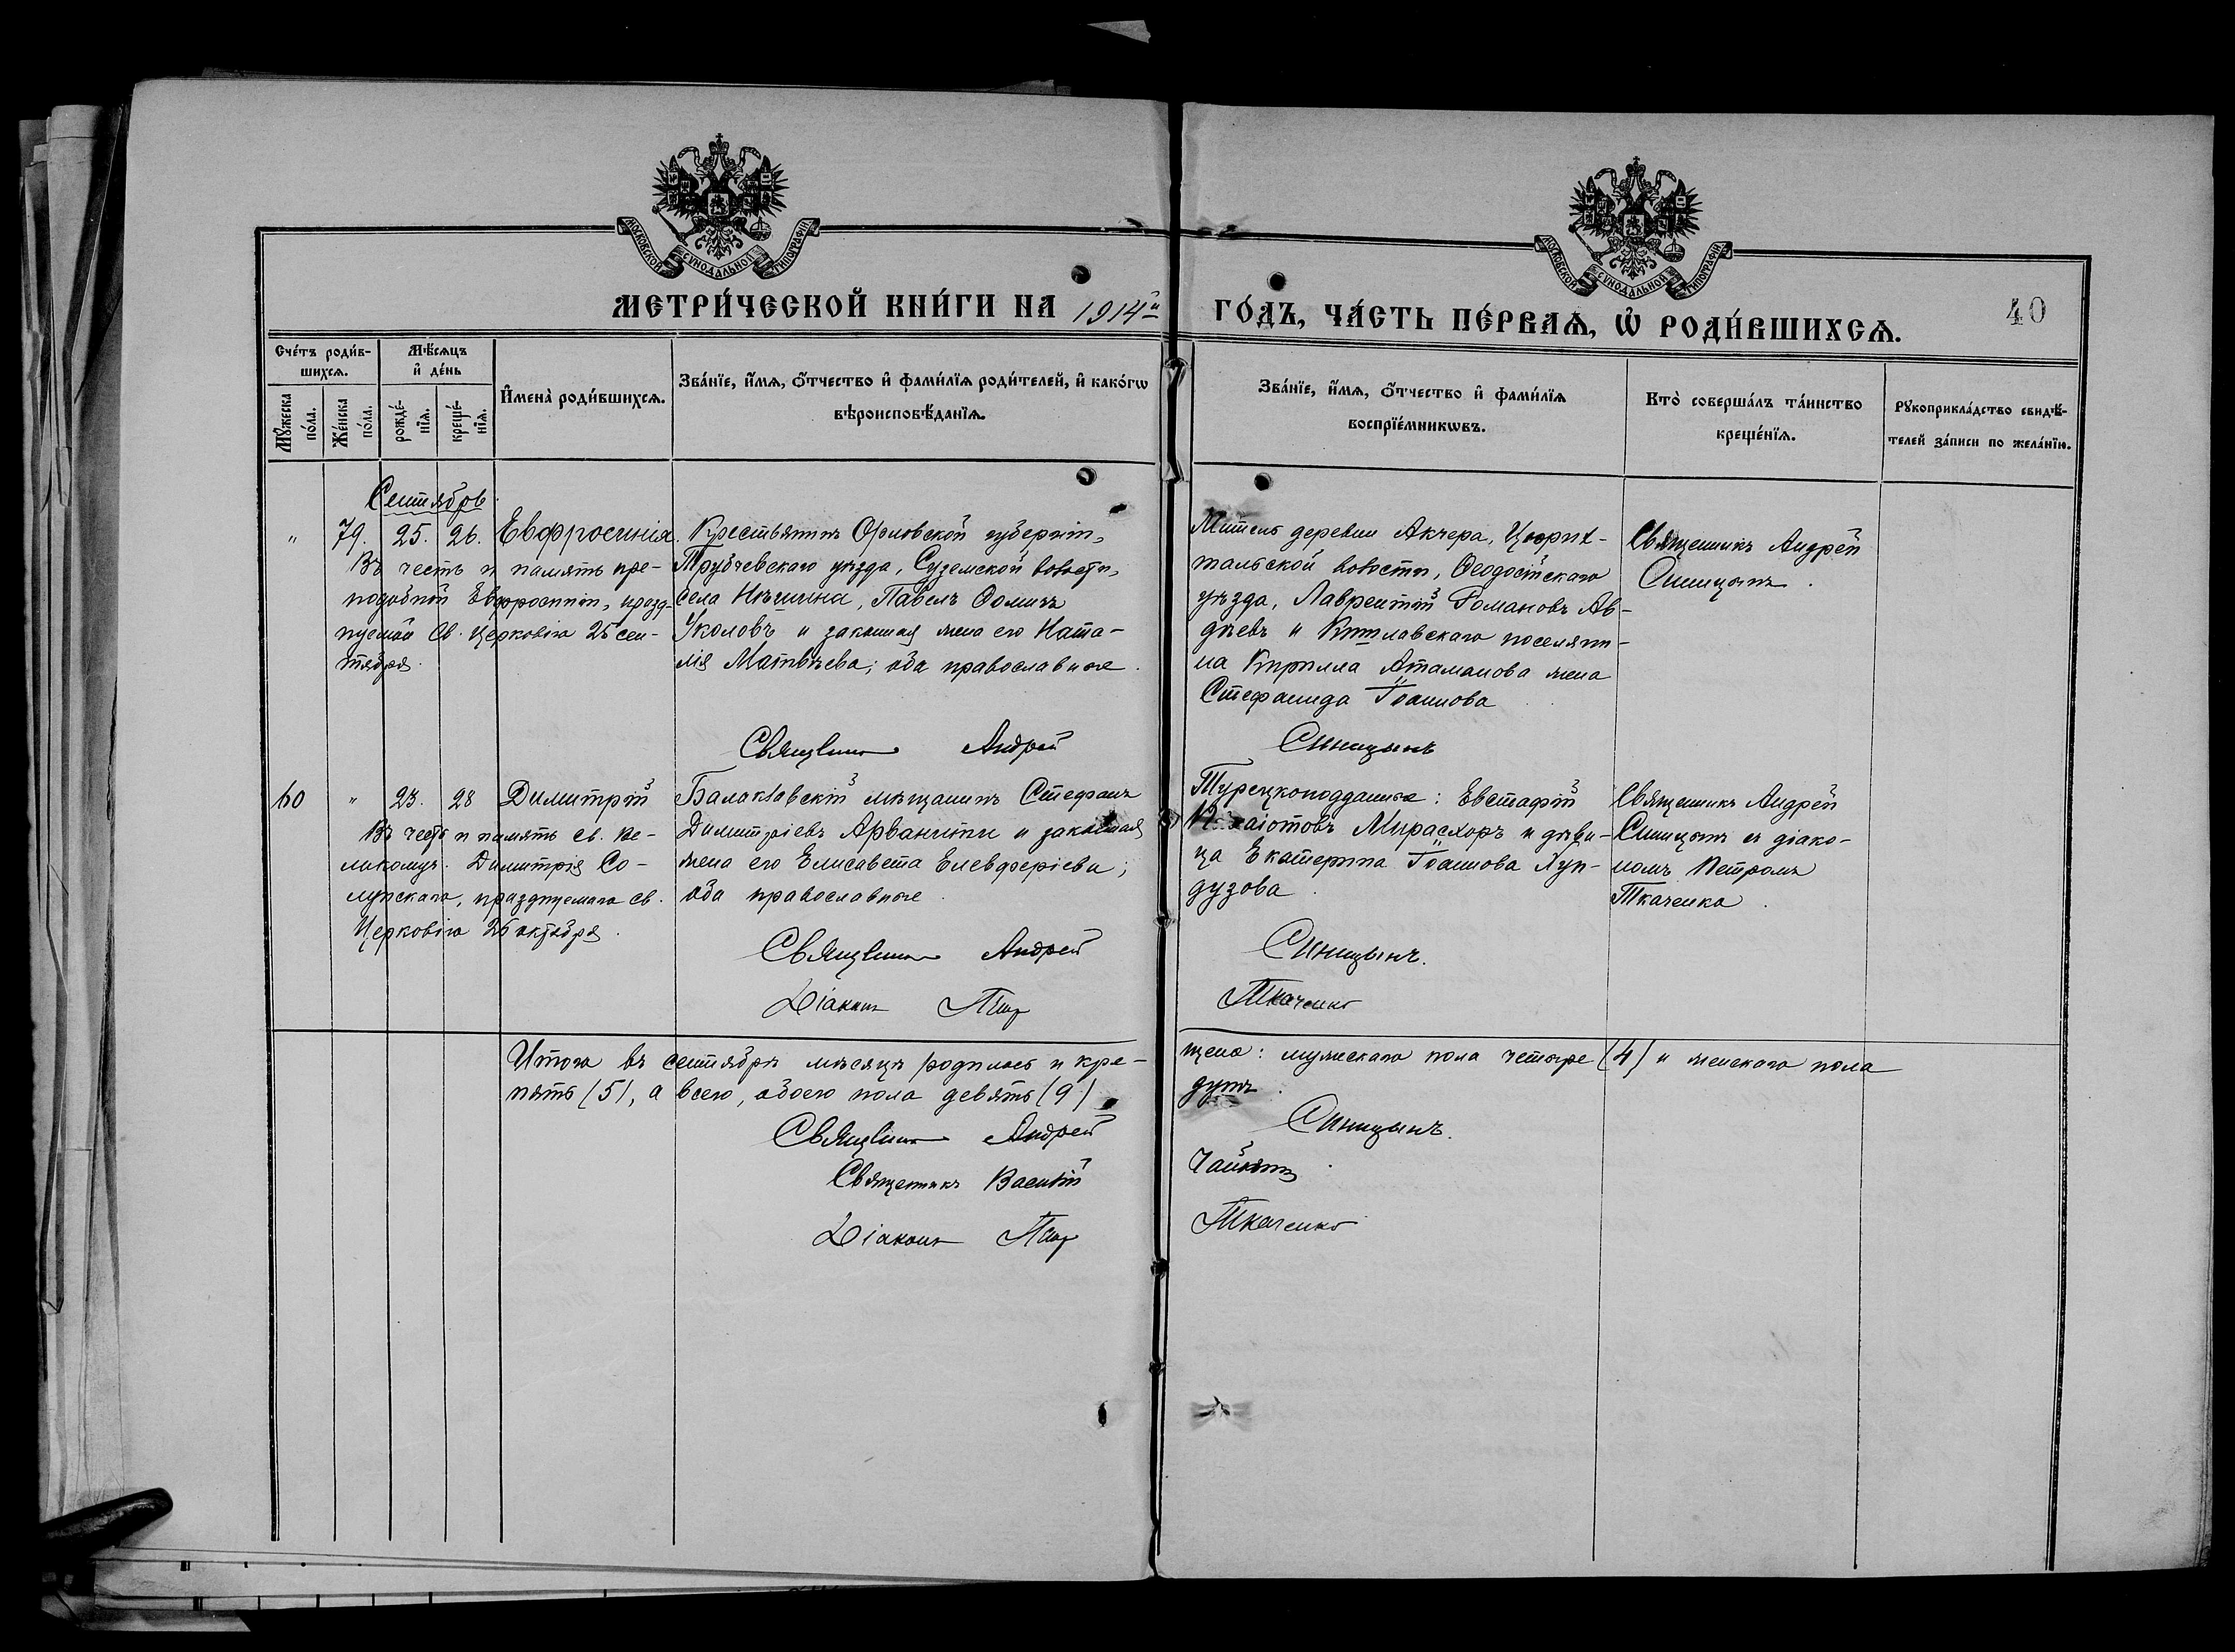 МОСКОВСКОЙ СѴНОДАЛЬНОЙ ТИПОГРАФІИ
МОСКОВСКОЙ СѴНОДАЛЬНОЙ ТИПОГРАФІИ
МЕТРИ́ЧЕСКОЙ КНИ́ГИ НА 1914й ГО́ДЪ, ЧА́СТЬ ПЕ́РВАѦ, Ѽ РОДИ́ВШИХСѦ.
40
Сче́тъ роди́в-
шихсѧ.
Мꙋ́жеска
по́ла.
Же́нска
по́ла.
Мѣ́сѧцъ
и҆ де́нь
рожде́-
нїѧ.
креще́-
нїѧ.
И҆мена̀ роди́вшихсѧ.
Зва́нїе, и҆́мѧ, ѻ҆́тчество и҆ фами́лїѧ роди́телей, и҆ како́гѡ
вѣроисповѣ́данїѧ.
Зва́нїе, и҆́мѧ, ѻ҆́тчество и҆ фами́лїѧ
воспрїе́мникѡвъ.
Кто̀ соверша́лъ та́инство
креще́нїѧ.
Рꙋкоприкла́дство свидѣ́-
телей за́писи по жела́нїю.
Сентябрь
" 79. 25. 26. Евфросинія.
Въ честь и память пре-
подобной Евфросиніи, празд-
нуемой Св. Церковію 25 сен-
тября.
Крестьянинъ Орловской губерніи,
Трубчевскаго уѣзда, Суземской волости,
села Нѣгина, Павелъ Ѳоминъ
Уколовъ и законная жена его Ната-
лія Матвѣева; оба православные.
Житель деревни Акчера, Цюрих-
тальской волости, Ѳеодосійскаго
уѣзда, Лаврентій Романовъ Ав-
дѣевъ и Кишлавскаго поселяни-
на Кирилла Атаманова жена
Стефанида Іоаннова
Священникъ Андрей
Синицынъ.
Священникъ Андрей Синицынъ
60 " 23. 28 Димитрій
Въ честь и память св. Ве-
ликомуч. Димитрія Со-
лунскаго, празднуемаго св.
Церковію 26 октября.
Балаклавскій мѣщанинъ Стефанъ
Димитріевъ Арванити и законная
жена его Елисавета Елевферіева;
оба православные.
Турецкоподданные: Евстафій
Мирасхоръ и дѣви-
ца Екатерина Іоаннова Лун-
дузова.
Священникъ Андрей
Синицынъ съ діако-
номъ Петромъ
Ткаченко.
Священникъ Андрей Синицынъ.
Діаконъ Петръ Ткаченко
Итого въ сентябрѣ мѣсяцѣ родилось и кре-щено: мужескаго пола четыре (4) и женскаго пола
пять (5), а всего, обоего пола девять (9) душъ.
Священникъ Андрей Синицынъ.
Священникъ Василій
Діаконъ Петръ Ткаченко